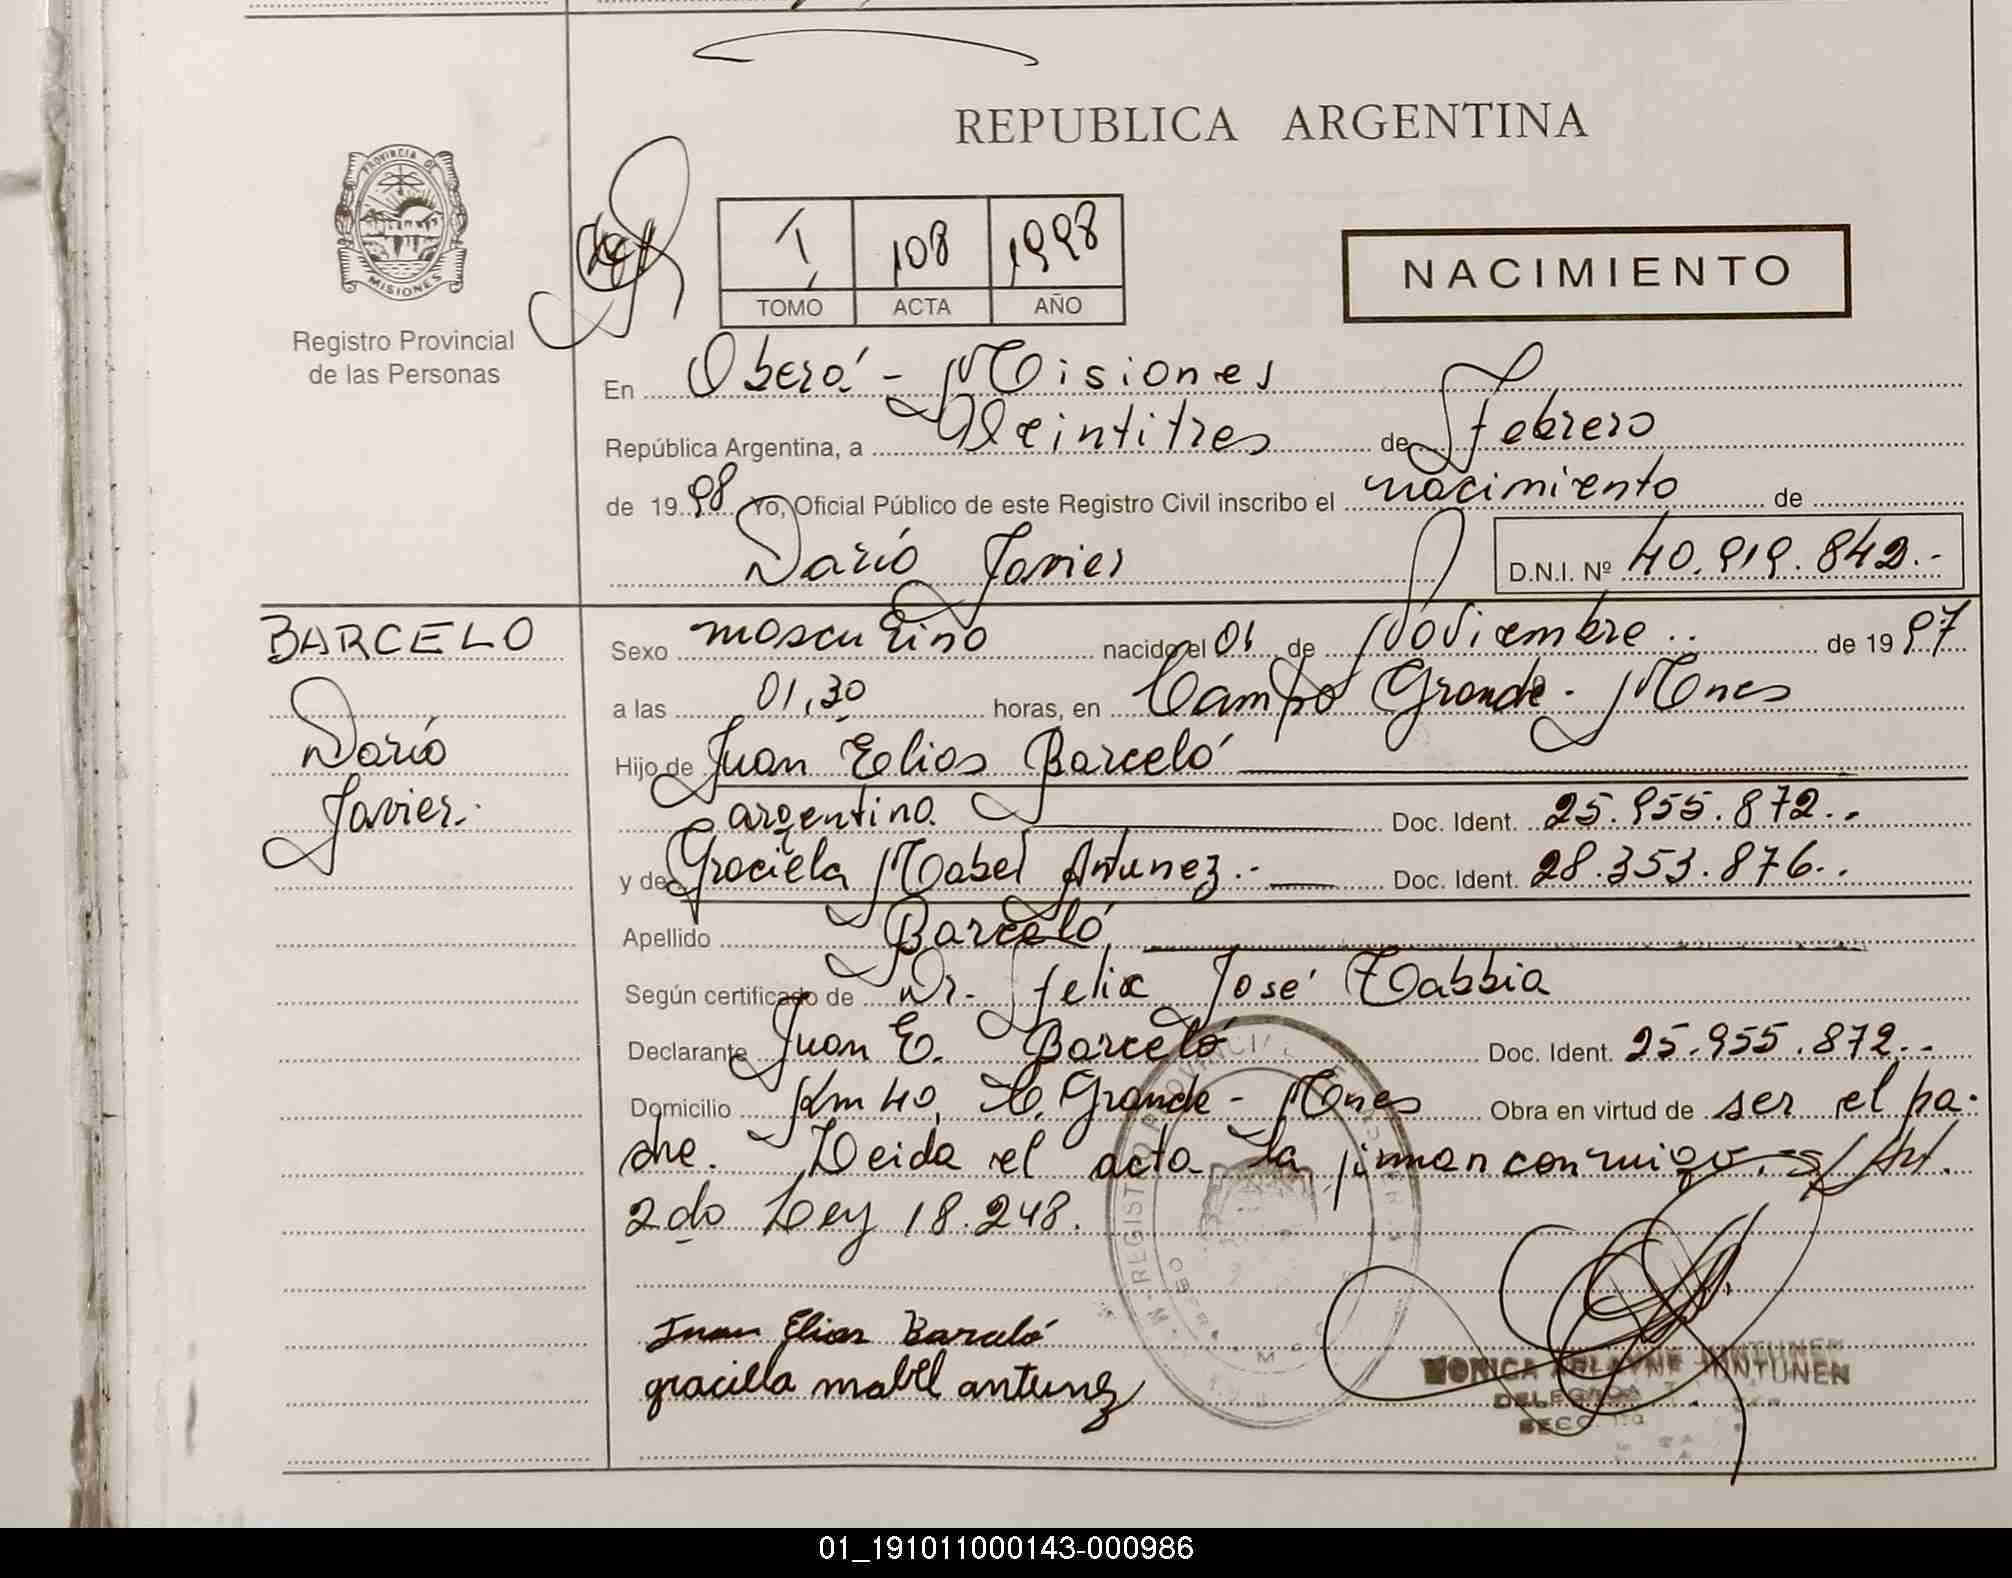 REPUBLICA ARGENTINA
PROVINCIA DE
MISIONES
Registro Provincial
de las Personas
1 108 1998
TOMO ACTA AÑO
NACIMIENTO
En Oberá - Misiones
República Argentina, a Veintitres de Febrero
de 1998 Yo, Oficial Público de este Registro Civil inscribo el nacimiento de
Darío Javier D.N.I. Nº 40.919.842.-
BARCELO
Darío
Javier.
Sexo masculino nacido el 01 de Noviembre.. de 1997
a las 01,30 horas, en Campo Grande - Mnes
Hijo de Juan Elias Barceló
argentino. Doc. Ident. 25.955.872..
y de Graciela Mabel Antunez.. Doc. Ident. 28.353.876..
Apellido Barceló
Según certificado de Dr. Felix José Tabbia
Declarante Juan E. Barceló Doc. Ident. 25.955.872..
Domicilio Km 40, C. Grande - Mnes Obra en virtud de ser el pa-
dre. Leida el acta la firman conmigo, s/ Art.
2do Ley 18.248.
Juan Elias Barceló
graciela mabel antunez
REGISTRO PROVINCIAL
MONICA ANTUNEN
DELEGADA
SECC.
01_191011000143-000986